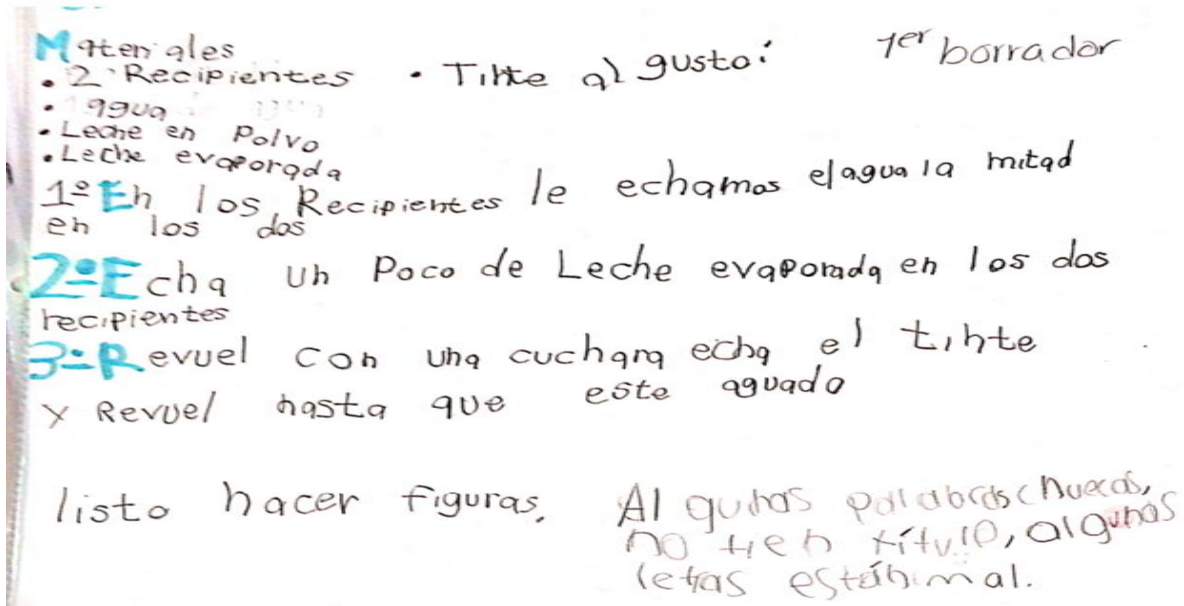 Materiales
• 2 Recipientes • Tinte al gusto: 1er borrador
• agua
• Leche en Polvo
• Leche evaporada
1º En los Recipientes le echamos el agua la mitad
en los dos
2º Echa un Poco de Leche evaporada en los dos
recipientes
3º Revuel con una cuchara echa el tinte
y Revuel hasta que este aguado
listo hacer figuras.
Algunas palabras chuecas,
no tien título, algunas
letras están mal.